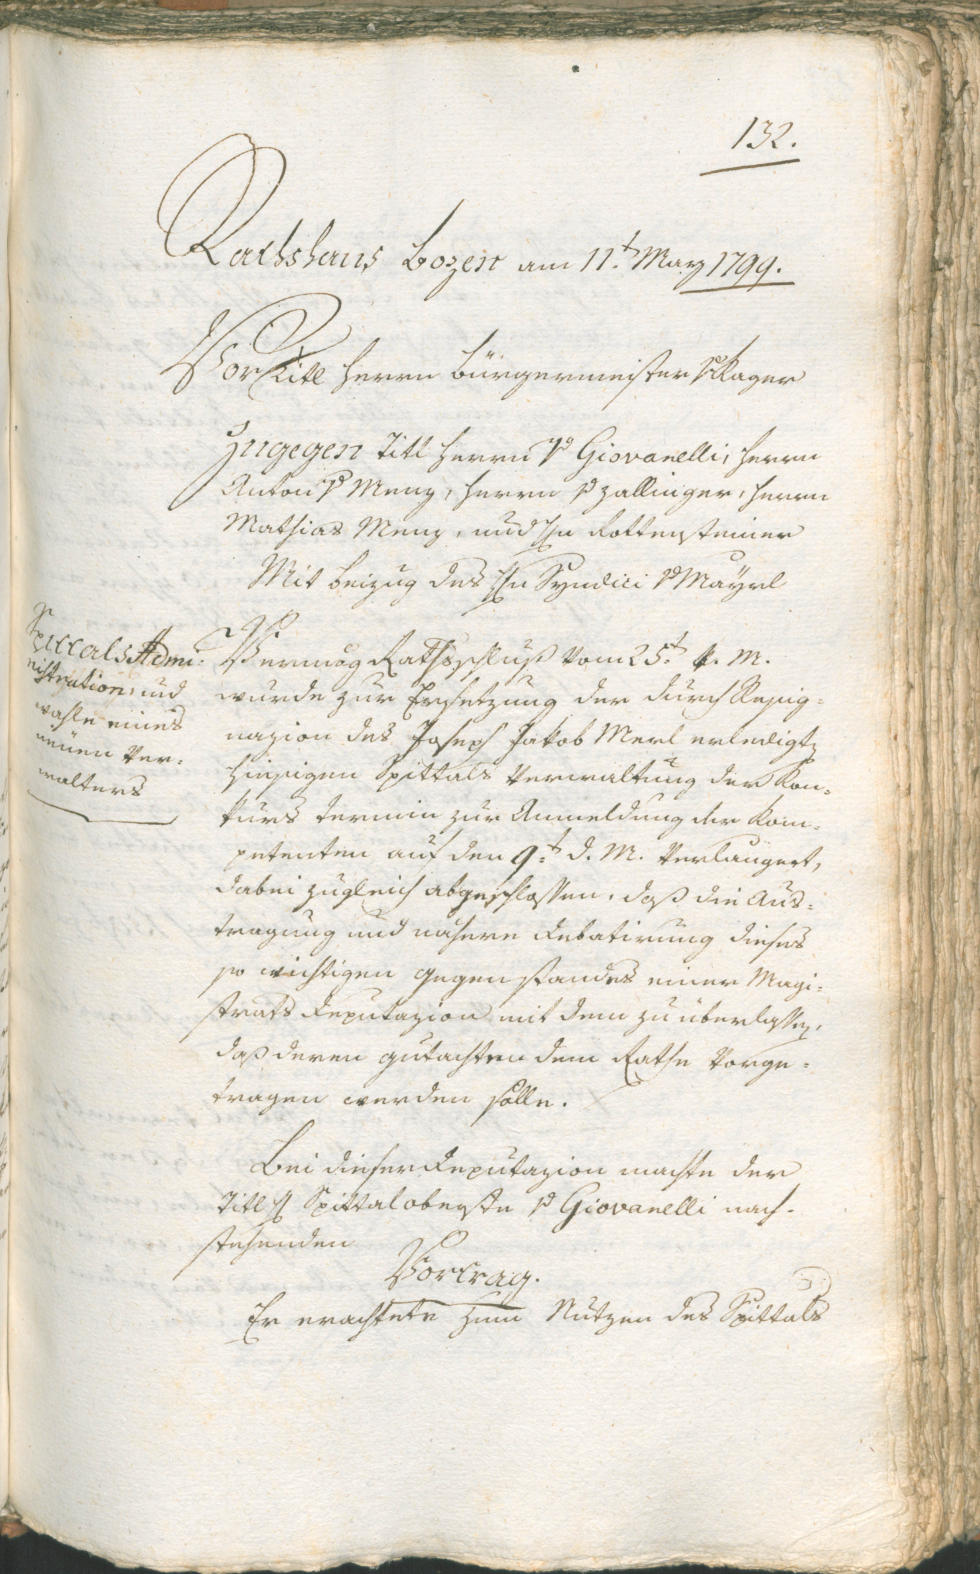 132.
Rathshaus Bozen am 11.t May 1799.
Vor Titl Herrn Bürgermeister
Zugegen Titl Herrn v Giovanelli, Herrn
Anton v Menz, Herrn v Zallinger, Herrn
Mathias Menz, und Hn Rottensteiner
Mit beizug des Hn Syndici v Mayrl
Spitals Admi-
nistration, und
wahle eines
neuen Ver-
walters
Vermög Rathsschluß vom 25.t M.
wurde zur Ersetzung der durch Resig-
nazion des Joseph Jakob Merl erledigten
hiesigen Spittals Verwaltung der Kon-
kurs termin zur Anmeldung der Kom-
petenten auf den 9.t d. M. verlängert,
dabei zugleich abgeschlossen, daß die Aus-
tragung und nähere Debatirung dieses
so wichtigen gegenstandes einer Magi-
strats Deputazion mit dem zu überlassen,
daß deren gutachten dem Rathe vorge-
tragen werden solle.
Bei dieser Deputazion machte der
Titl H Spittalobrste v Giovanelli nach-
stehenden
Vortrag.
Er erachtete zum Nutzen des Spittals